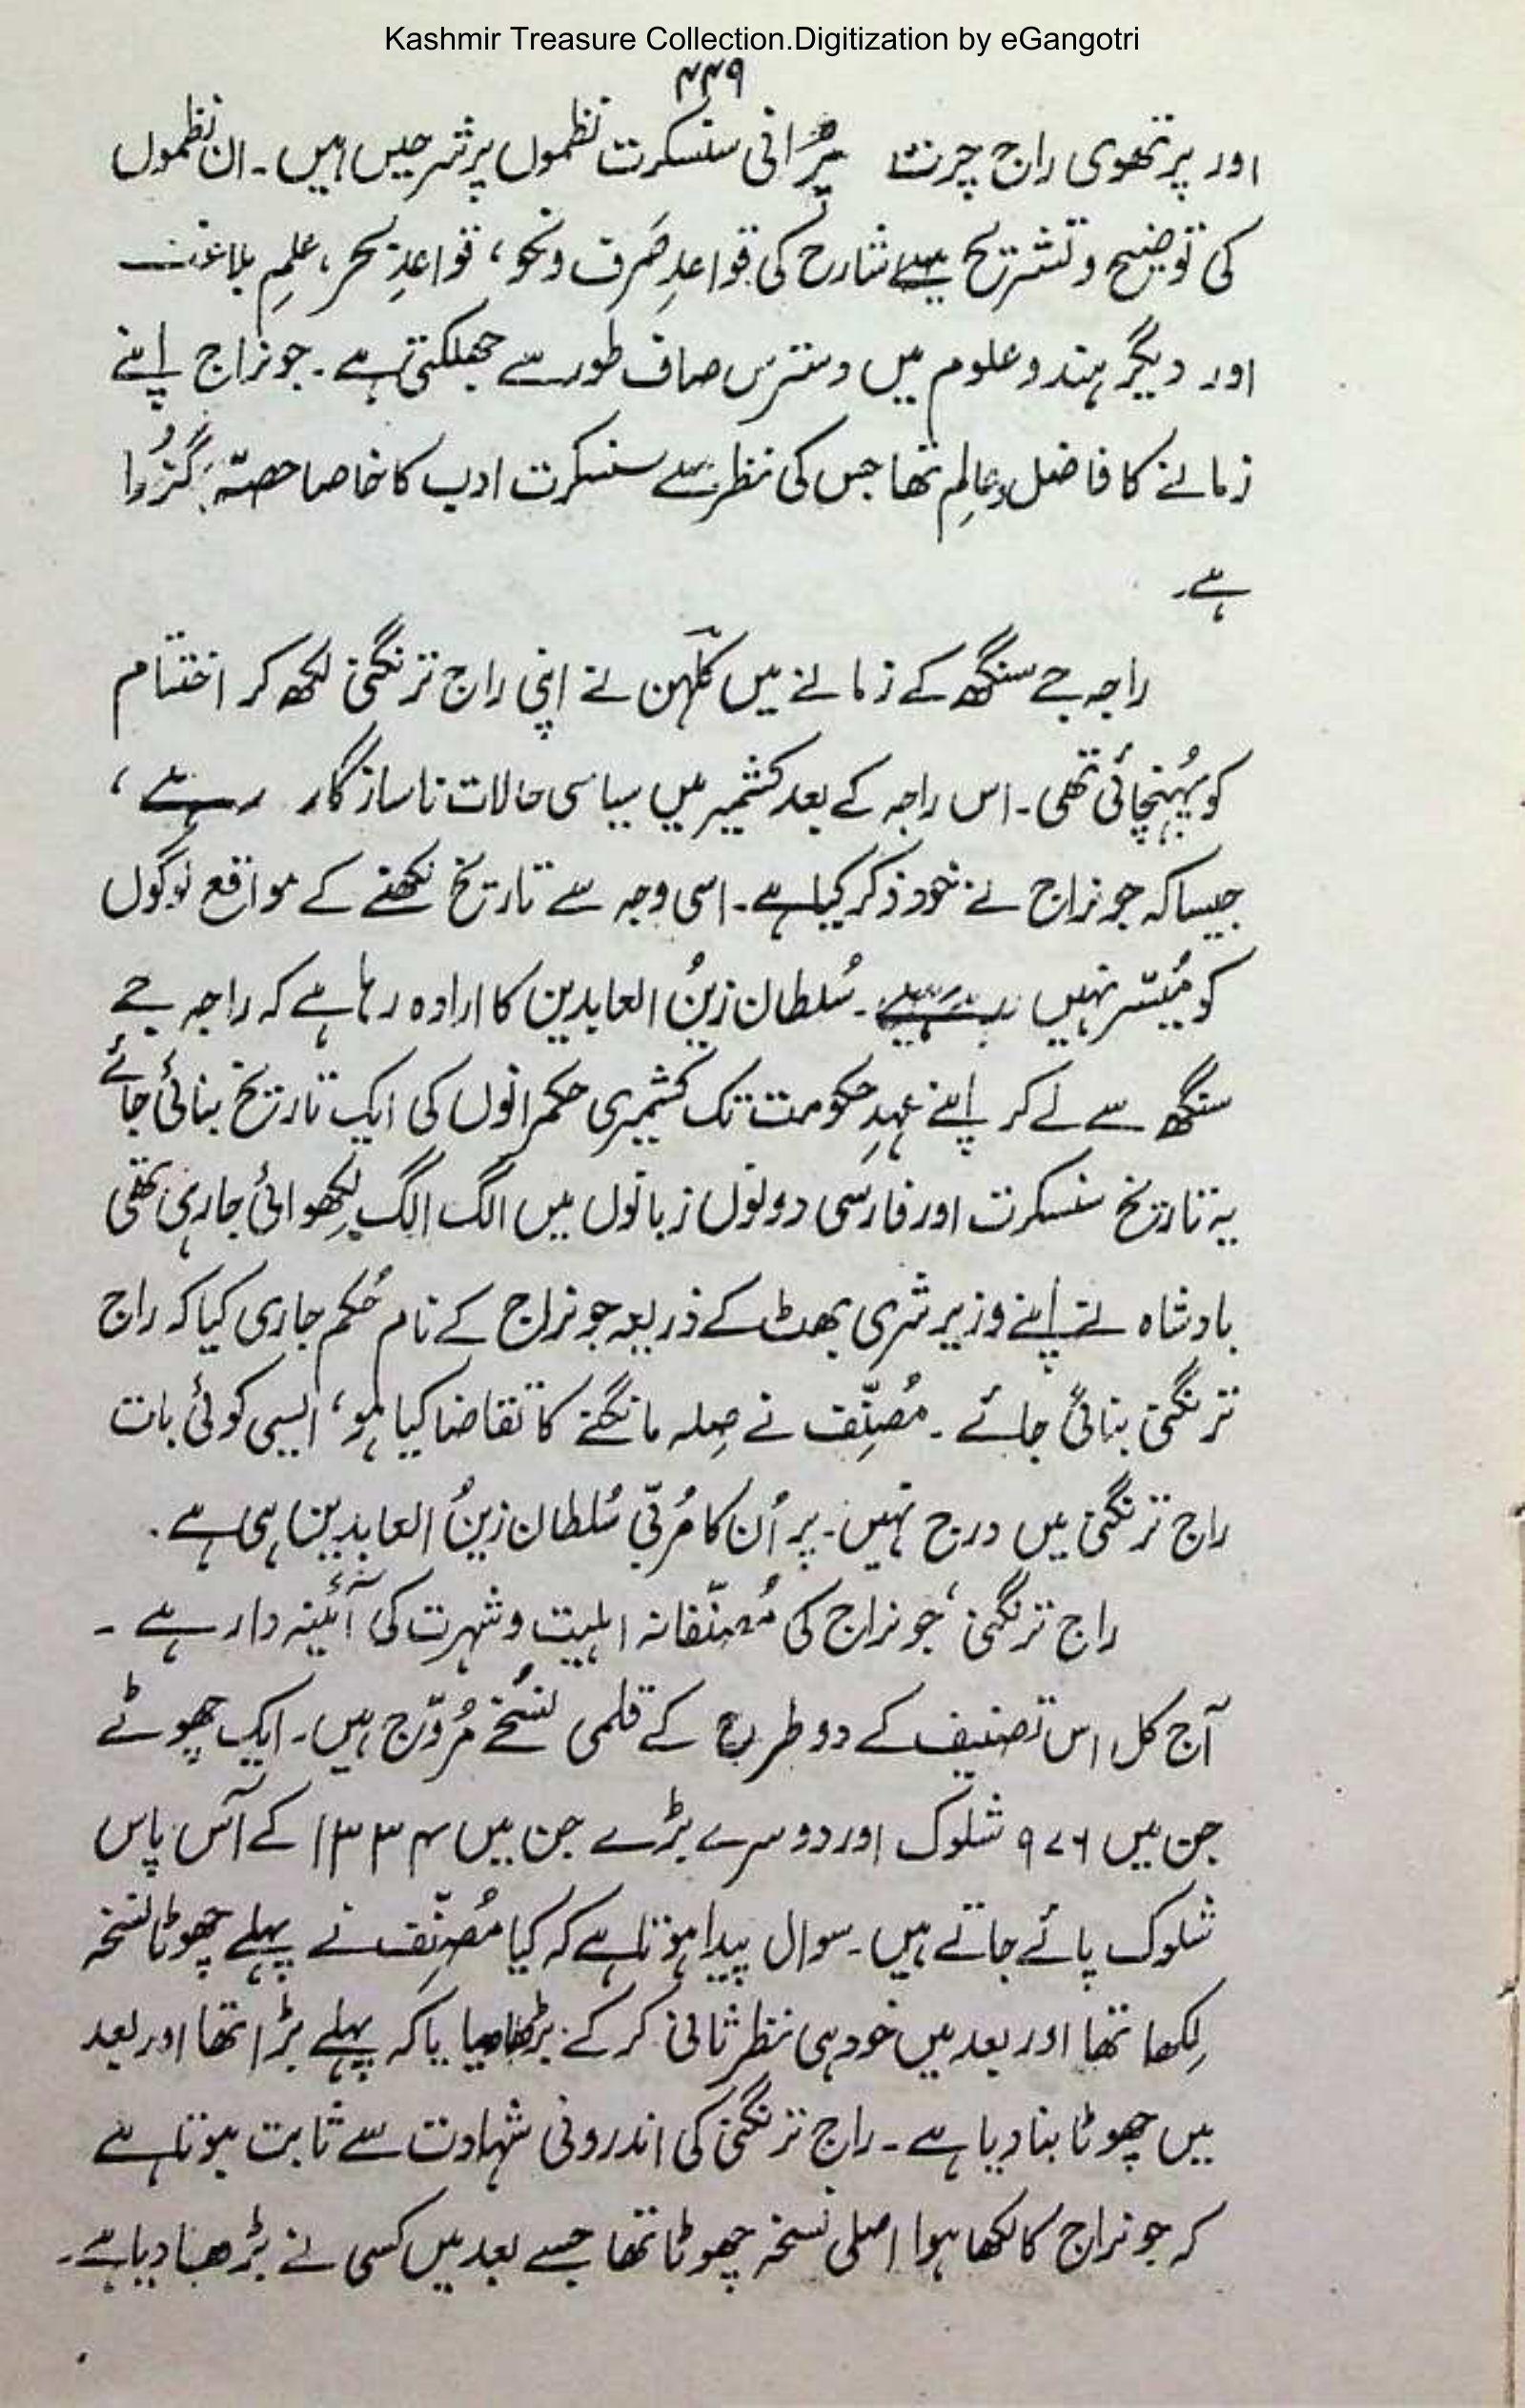 Kashmir Treasure Collection.Digitization by eGangotri
۴۴۹
اور پرتھوی راج چرت پُرانی سنسکرت نظموں پر شرحیں ہیں۔ ان نظموں
کی توضیح و تشریح سے شارح کی قواعدِ صَرف و نحو، قواعدِ بحر، علمِ بلاغت
اور دیگر ہندو علوم میں دسترس صاف طور سے جھلکتی ہے۔ جونراج اپنے
زمانے کا فاضل و عالِم تھا جس کی نظر سے سنسکرت ادب کا خاصا حصّہ گزرا
ہے۔
راجہ جے سنگھ کے زمانے میں کلہن نے اپنی راج ترنگنی لکھ کر اختتام
کو پہُنچائی تھی۔ اس راجہ کے بعد کشمیر میں سیاسی حالات ناسازگار رہے،
جیسا کہ جونراج نے خود ذکر کیا ہے۔ اسی وجہ سے تاریخ لکھنے کے مواقع لوگوں
کو مُیسّر نہیں رہے۔ سُلطان زینُ العابدین کا ارادہ رہا ہے کہ راجہ جے
سنگھ سے لے کر اپنے عہدِ حکومت تک کشمیری حکمرانوں کی ایک تاریخ بنائی جائے
یہ تاریخ سنسکرت اور فارسی دونوں زبانوں میں الگ الگ لِکھوائی جارہی تھی
بادشاہ نے اپنے وزیر شری بھٹ کے ذریعہ جونراج کے نام حُکم جاری کیا کہ راج
ترنگنی بنائی جائے۔ مُصنِّف نے صِلہ مانگنے کا تقاضا کیا ہو، ایسی کوئی بات
راج ترنگنی میں درج نہیں۔ پر اُن کا مُربّی سُلطان زینُ العابدین ہی ہے۔
راج ترنگنی، جونراج کی مُصنّفانہ اہلیت و شہرت کی آئینہ دار ہے۔
آج کل اس تصنیف کے دو طرح کے قلمی نسُخے مُروّج ہیں۔ ایک چھوٹے
جن میں ۹۷۶ شلوک اور دوسرے بڑے جن میں ۱۳۳۴ کے آس پاس
شلوک پائے جاتے ہیں۔ سوال پیدا ہوتا ہے کہ کیا مُصنِّف نے پہلے چھوٹا نسخہ
لِکھا تھا اور بعد میں خود ہی نظر ثانی کر کے بڑھا دیا یا کہ پہلے بڑا تھا اور بعد
میں چھوٹا بنا دیا ہے۔ راج ترنگنی کی اندرونی شہادت سے ثابت ہوتا ہے
کہ جونراج کا لکھا ہوا اصلی نسخہ چھوٹا تھا جسے بعد میں کسی نے بڑھا دیا ہے۔